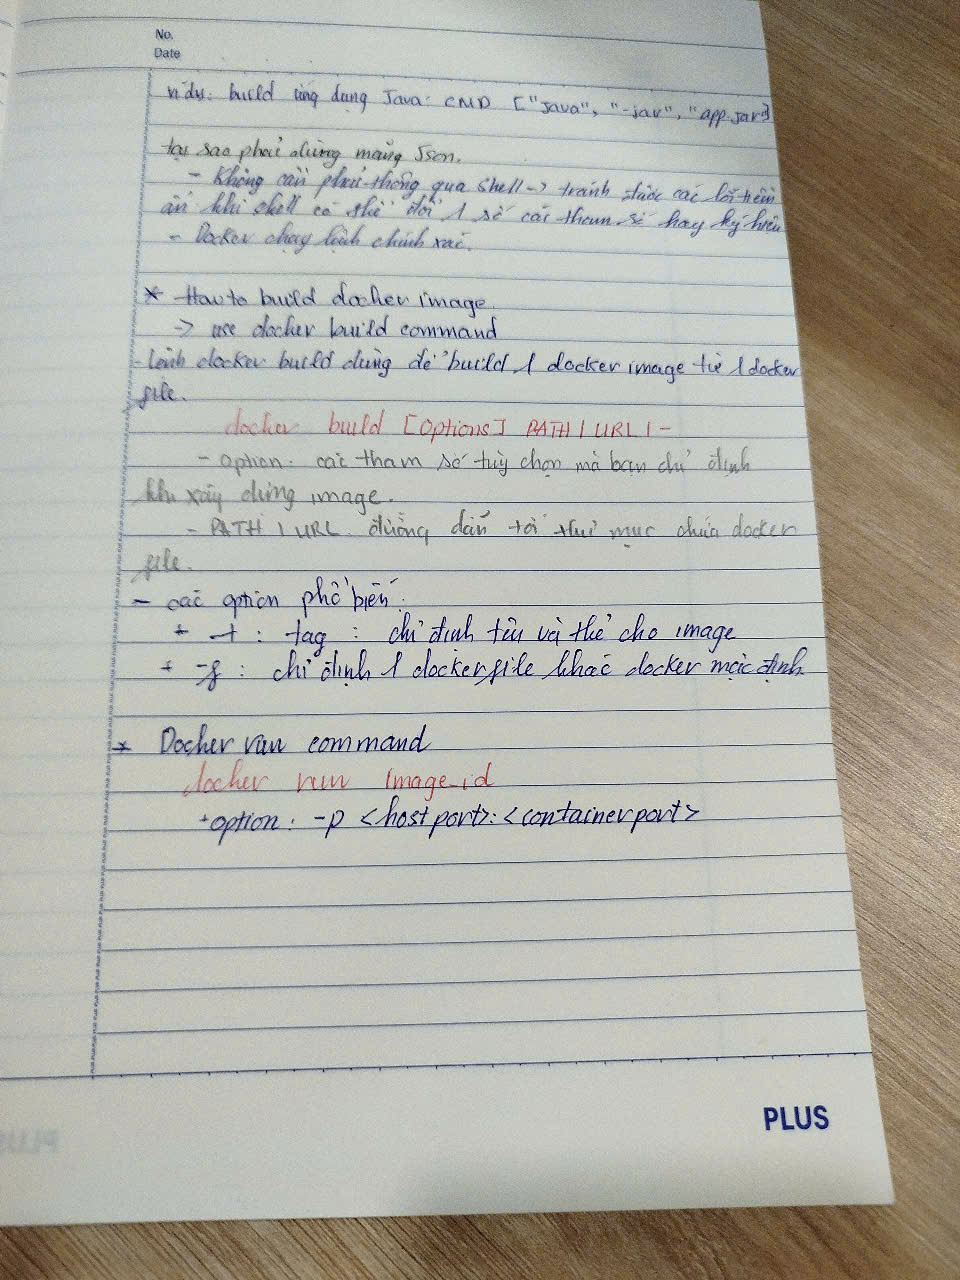 No.
Date
ví dụ: build ứng dụng Java: CMD ["Java", "-jar", "app.jar"]
tại sao phải dùng mảng Json.
- Không cần phải thông qua shell -> tránh được các lỗi tiềm
ẩn khi shell có thể đổi 1 số các tham số hay ký hiệu
- Docker chạy lệnh chính xác.
* How to build docker image.
-> use docker build command
- Lệnh docker build dùng để build 1 docker image từ 1 docker
file.
docker build [Options] PATH | URL | -
- Option: các tham số tuỳ chọn mà bạn chỉ định
khi xây dựng image.
- PATH | URL: đường dẫn tới thư mục chứa docker
file.
- các option phổ biến:
+ -t : tag : chỉ định tên và thẻ cho image
+ -f : chỉ định 1 dockerfile khác docker mặc định.
* Docker run command
docker run image_id
+ option: -p <host port>:<container port>
PLUS